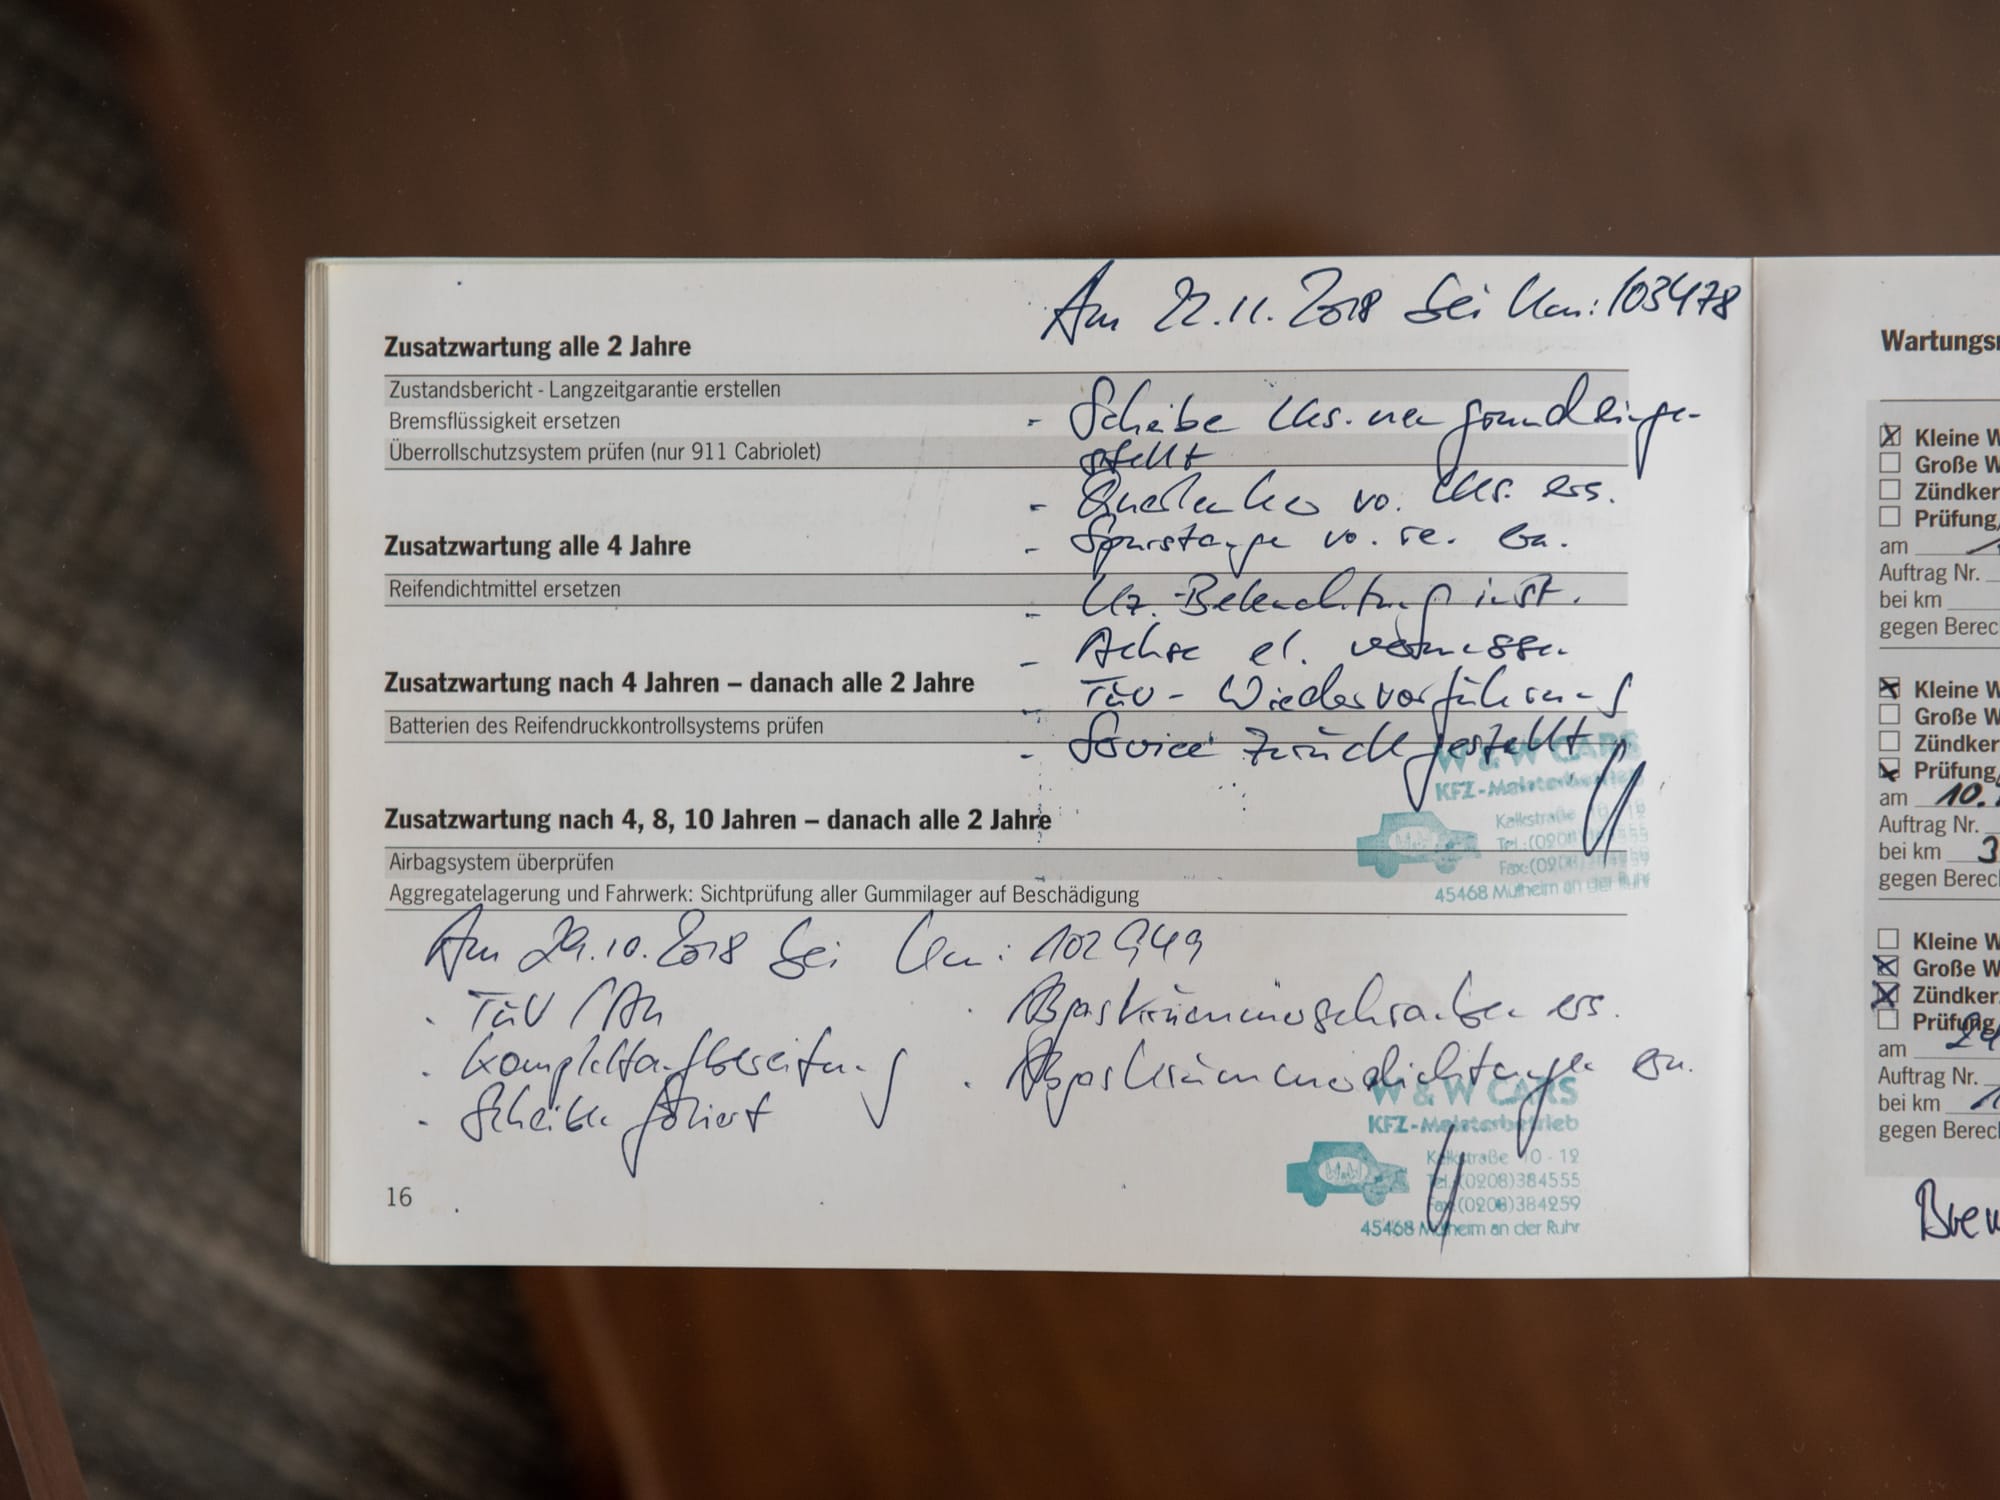 Am 22.11.2018 bei Km: 103478
Zusatzwartung alle 2 Jahre
Zustandsbericht - Langzeitgarantie erstellen
Bremsflüssigkeit ersetzen
Überrollschutzsystem prüfen (nur 911 Cabriolet)
- Scheibe lks. neu grundeinge-
stellt
- Querlenker vo. lks. ers.
- Spurstange vo. re. ern.
Zusatzwartung alle 4 Jahre
Reifendichtmittel ersetzen
- Kz.-Beleuchtung inst.
- Achse el. vermessen
Zusatzwartung nach 4 Jahren – danach alle 2 Jahre
Batterien des Reifendruckkontrollsystems prüfen
- TÜV - Wiedervorführung
- Service zurückgestellt
W & W CARS
KFZ-Meisterbetrieb
Kalkstraße 10 - 12
Tel.:(0208)384555
Fax:(0208)384259
45468 Mülheim an der Ruhr
Zusatzwartung nach 4, 8, 10 Jahren – danach alle 2 Jahre
Airbagsystem überprüfen
Aggregatelagerung und Fahrwerk: Sichtprüfung aller Gummilager auf Beschädigung
Am 29.10.2018 bei Km: 102949
- TÜV / AU
- Komplettaufbereitung
- Scheiben foliert
- Abgaskrümmerschrauben ers.
- Abgaskrümmerdichtungen ern.
W & W CARS
KFZ-Meisterbetrieb
Kalkstraße 10 - 12
Tel.:(0208)384555
Fax:(0208)384259
45468 Mülheim an der Ruhr
16
Wartungs
Kleine W
Große W
Zündker
Prüfung,
am
Auftrag Nr.
bei km
gegen Berec
Kleine W
Große W
Zündker
Prüfung,
am 10.
Auftrag Nr.
bei km 3
gegen Berec
Kleine W
Große W
Zündker
Prüfung
am 24
Auftrag Nr.
bei km 1
gegen Berec
Brem